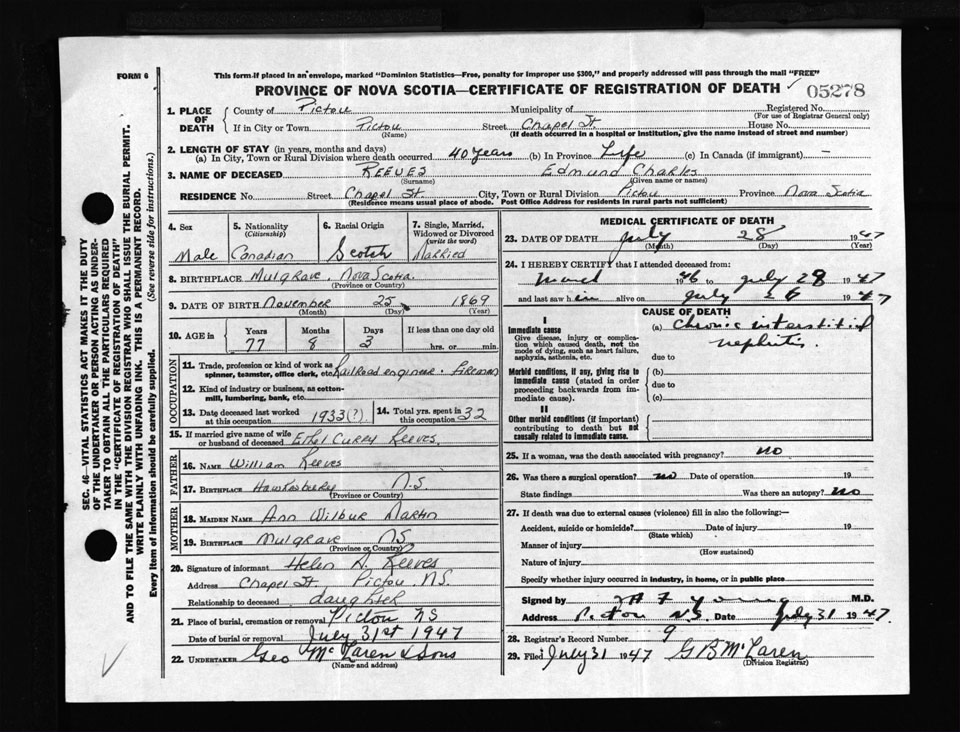 FORM 6
This form if placed in an envelope, marked "Dominion Statistics—Free, penalty for improper use $300," and properly addressed will pass through the mail "FREE"
PROVINCE OF NOVA SCOTIA—CERTIFICATE OF REGISTRATION OF DEATH 05278
1. PLACE OF DEATH
County of Pictou Municipality of Registered No.
(For use of Registrar General only)
If in City or Town Pictou Street Chapel St. House No.
(Name) (If death occurred in a hospital or institution, give the name instead of street and number)
2. LENGTH OF STAY (in years, months and days)
(a) In City, Town or Rural Division where death occurred 40 years (b) In Province Life (c) In Canada (if immigrant) —
3. NAME OF DECEASED REEVES Edmund Charles
(Surname) (Given name or names)
RESIDENCE No. Street Chapel St. City, Town or Rural Division Pictou Province Nova Scotia
(Residence means usual place of abode. Post Office Address for residents in rural parts not sufficient)
SEC. 46—VITAL STATISTICS ACT MAKES IT THE DUTY
OF THE UNDERTAKER OR PERSON ACTING AS UNDER-
TAKER TO OBTAIN ALL THE PARTICULARS REQUIRED
IN THE "CERTIFICATE OF REGISTRATION OF DEATH"
AND TO FILE THE SAME WITH THE DIVISION REGISTRAR WHO SHALL ISSUE THE BURIAL PERMIT.
WRITE PLAINLY WITH UNFADING INK. THIS IS A PERMANENT RECORD.
Every item of information should be carefully supplied. (See reverse side for instructions.)
4. Sex
Male
5. Nationality
(Citizenship)
Canadian
6. Racial Origin
Scotch
7. Single, Married,
Widowed or Divorced
(write the word)
Married
8. BIRTHPLACE Mulgrave, Nova Scotia
(Province or Country)
9. DATE OF BIRTH November 25 1869
(Month) (Day) (Year)
10. AGE in Years Months Days If less than one day old
77 8 3 hrs. or min.
OCCUPATION
11. Trade, profession or kind of work as
spinner, teamster, office clerk, etc. Railroad engineer. Fireman
12. Kind of industry or business, as cotton-
mill, lumbering, bank, etc.
13. Date deceased last worked
at this occupation 1933(?)
14. Total yrs. spent in
this occupation 32
15. If married give name of wife
or husband of deceased Ethel Curry Reeves.
FATHER
16. NAME William Reeves
17. BIRTHPLACE Hawkesbury N.S.
(Province or Country)
MOTHER
18. MAIDEN NAME Ann Wilbur Martin
19. BIRTHPLACE Mulgrave NS
(Province or Country)
20. Signature of informant Helen A. Reeves
Address Chapel St. Pictou, N.S.
Relationship to deceased daughter
21. Place of burial, cremation or removal Pictou NS
Date of burial or removal July 31st 1947
22. UNDERTAKER Geo McLaren & Sons
(Name and address)
MEDICAL CERTIFICATE OF DEATH
23. DATE OF DEATH July 28 1947
(Month) (Day) (Year)
24. I HEREBY CERTIFY that I attended deceased from:
March 1946 to July 28 1947
and last saw him alive on July 26 1947
CAUSE OF DEATH
I
Immediate cause
Give disease, injury or complica-
tion which caused death, not the
mode of dying, such as heart failure,
asphyxia, asthenia, etc.
(a) Chronic interstitial
nephritis.
due to
Morbid conditions, if any, giving rise to
immediate cause (stated in order
proceeding backwards from im-
mediate cause).
(b)
due to
(c)
II
Other morbid conditions (if important)
contributing to death but not
causally related to immediate cause.
25. If a woman, was the death associated with pregnancy? no
26. Was there a surgical operation? no Date of operation 19
State findings Was there an autopsy? no
27. If death was due to external causes (violence) fill in also the following:—
Accident, suicide or homicide? Date of injury 19
(State which)
Manner of injury
(How sustained)
Nature of injury
Specify whether injury occurred in industry, in home, or in public place
Signed by Young M.D.
Address Pictou N.S. Date July 31 1947
28. Registrar's Record Number 9
29. Filed July 31 1947 G B McLaren
(Division Registrar)